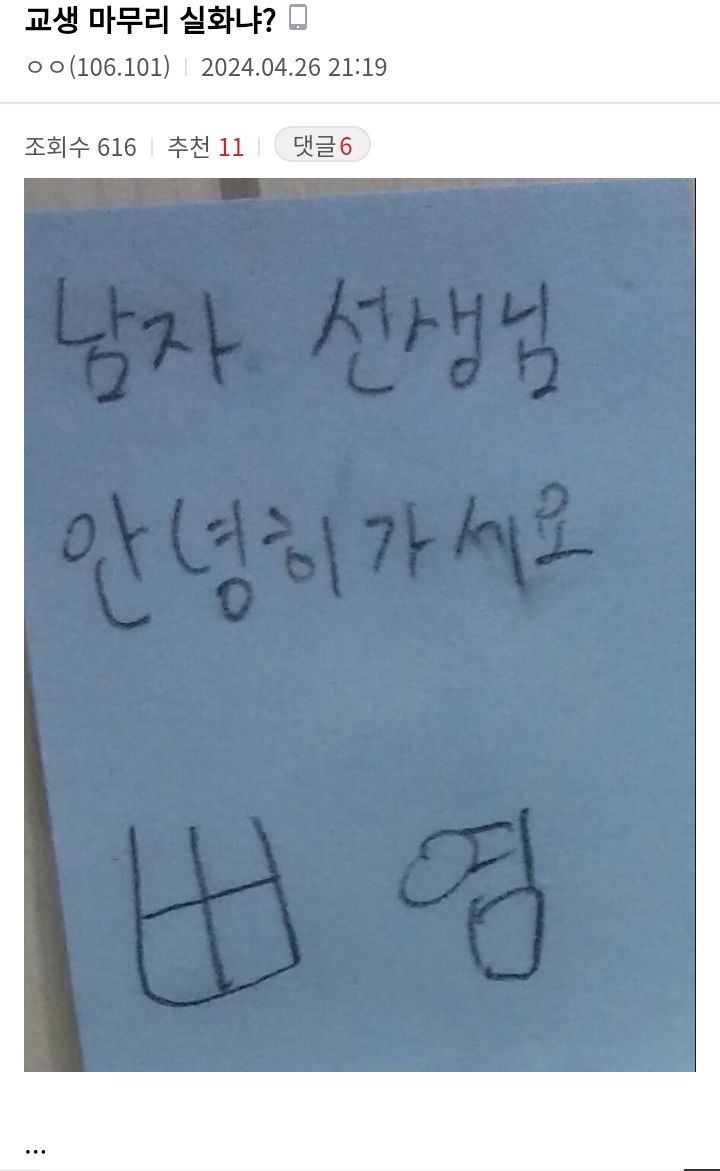 교생 마무리 실화냐?
ㅇㅇ(106.101) | 2024.04.26 21:19
조회수 616 | 추천 11 | 댓글 6
남자 선생님
안녕히가세요
ㅃ 염
...